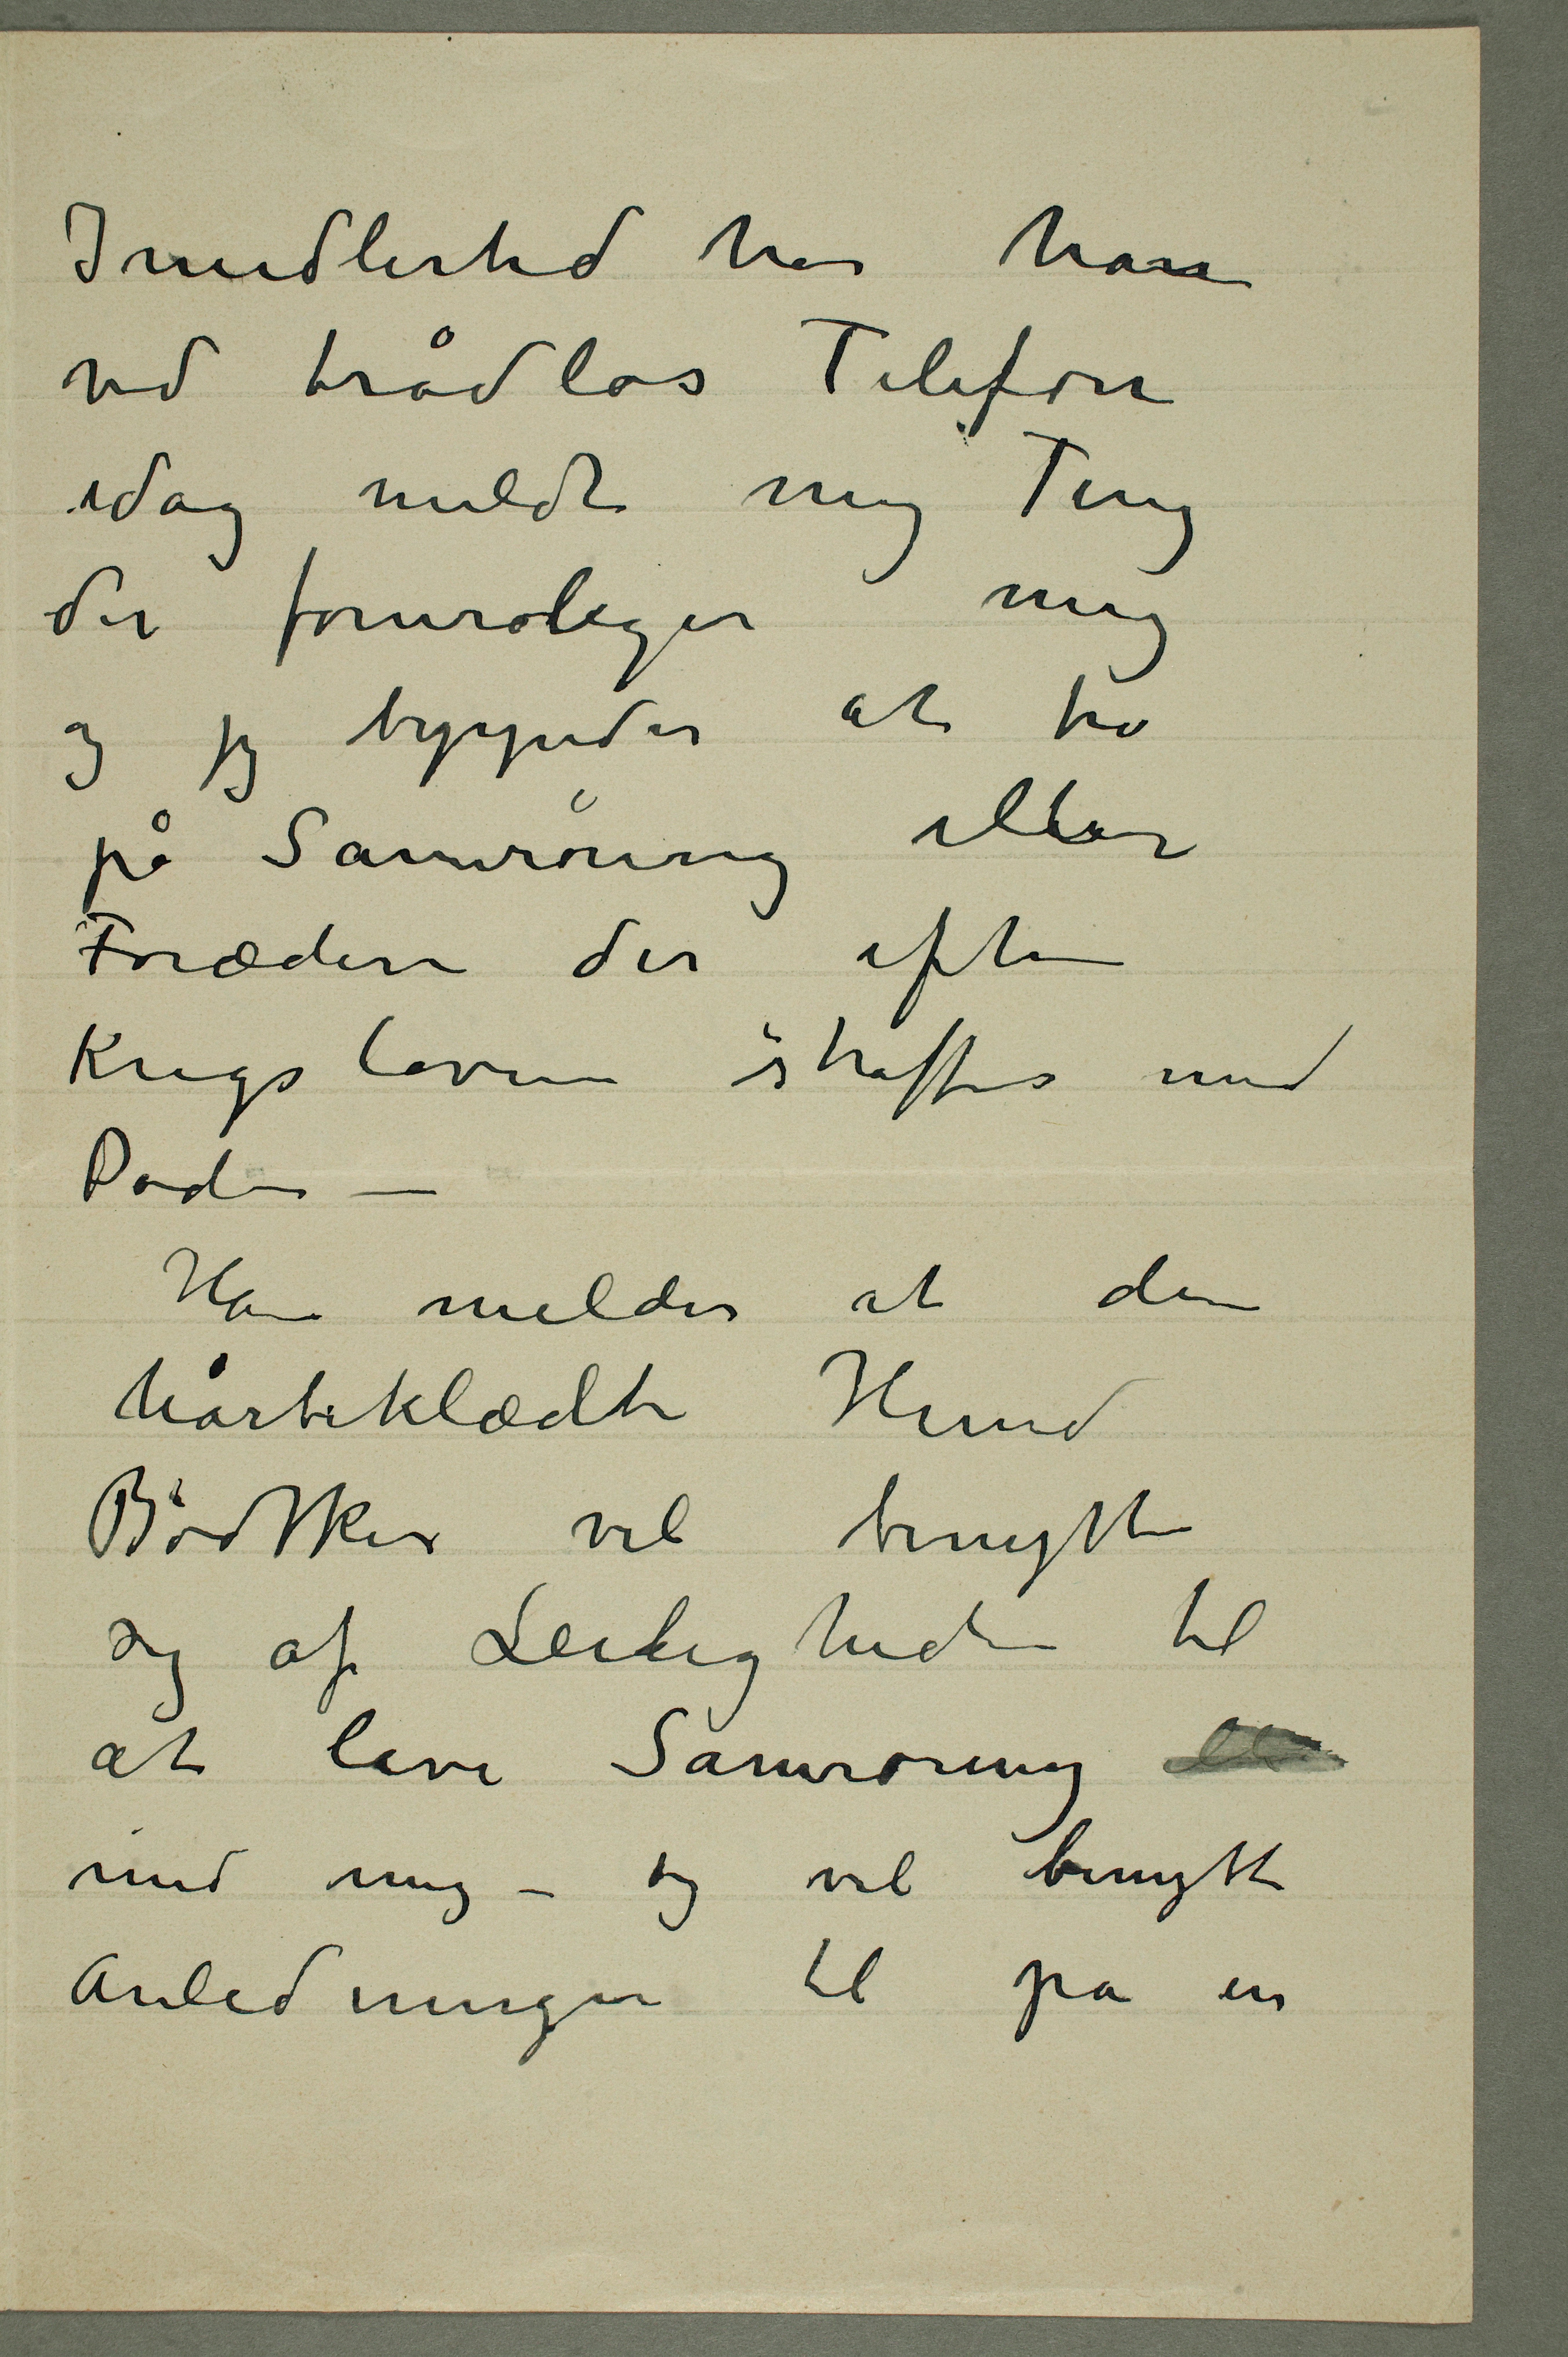 Imidlertid har han
ved trådløs Telefon
idag meldt mig Ting
der foruroliger mig
og jeg bgynder at tro
på Samrøring eller
Foræderi der efter
Krigsloven straffes med
Døden –
Han melder at den
hårbeklædte Hund
Bødtker vil benytte
sig af Leiligheden til
at lave Samrøring
med mig – og vil benytte
Anledningen til pa en